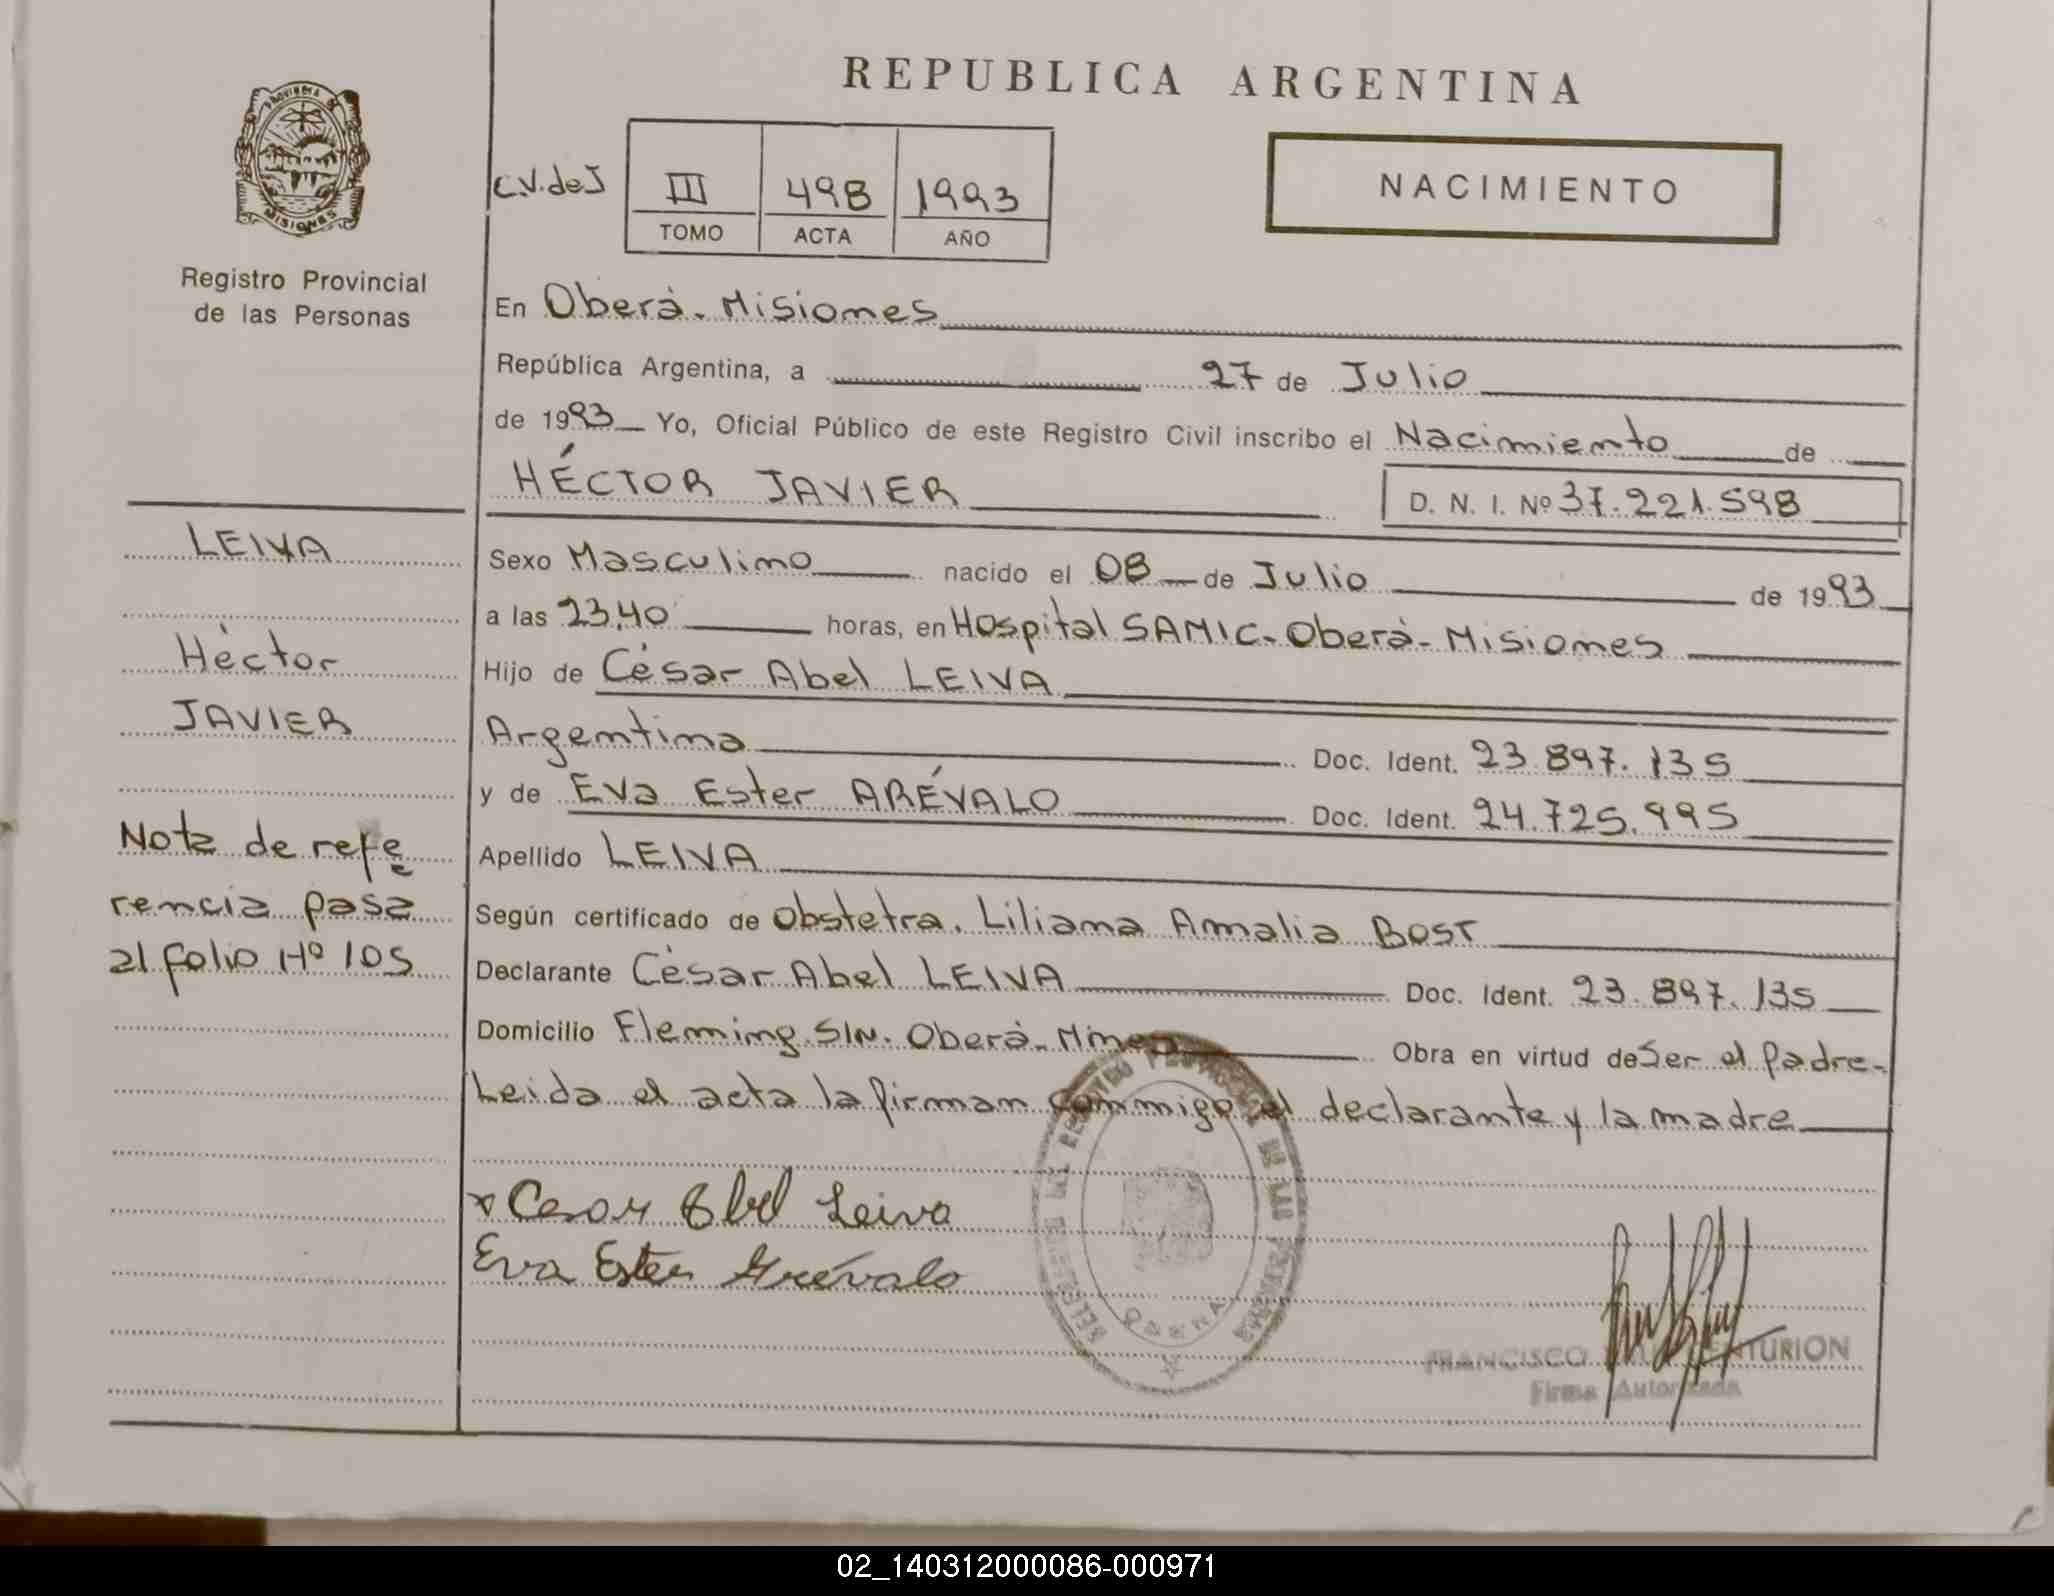 REPUBLICA ARGENTINA
PROVINCIA DE
MISIONES
Registro Provincial
de las Personas
C.V. de J
III 498 1993
TOMO ACTA AÑO
NACIMIENTO
En Oberá. Misiones
República Argentina, a 27 de Julio
de 1993 Yo, Oficial Público de este Registro Civil inscribo el Nacimiento de
HÉCTOR JAVIER D. N. I. Nº 37.221.598
Sexo Masculino nacido el 08 de Julio de 1993
a las 23,40 horas, en Hospital SAMIC. Oberá. Misiones
Hijo de César Abel LEIVA
Argentina Doc. Ident. 23.897.135
y de Eva Ester ARÉVALO Doc. Ident. 24.725.995
Apellido LEIVA
Según certificado de Obstetra. Liliana Amalia BOST
Declarante César Abel LEIVA Doc. Ident. 23.897.135
Domicilio Fleming S/N. Oberá. Mnes Obra en virtud de Ser el padre.
Leida el acta la firman conmigo el declarante y la madre
Cesar Abel Leiva
Eva Ester Arévalo
LEIVA
Héctor
JAVIER
Nota de refe
rencia pasa
al folio Nº 105
DEL REGISTRO PROVINCIAL DE LAS PERSONAS
OBERA
FRANCISCO CENTURION
Firma Autorizada
02_140312000086-000971